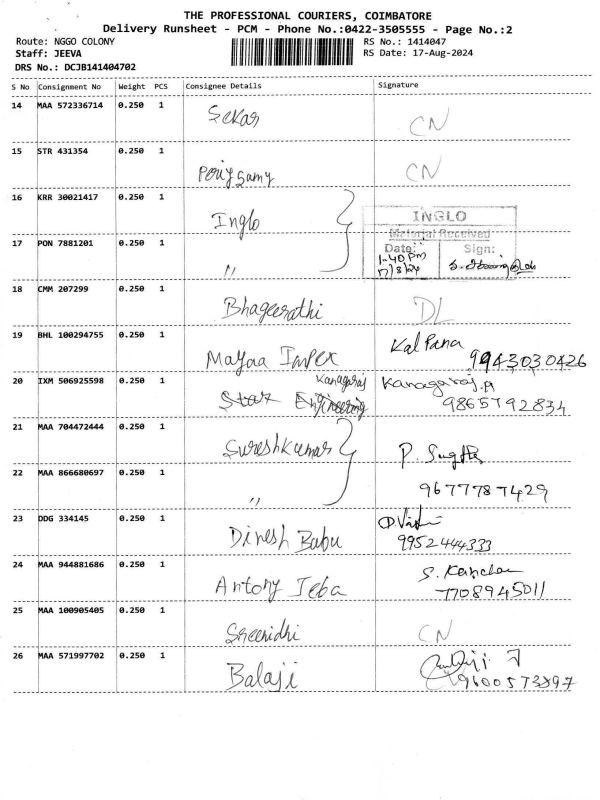 THE PROFESSIONAL COURIERS, COIMBATORE
Delivery Runsheet - PCM - Phone No.:0422-3505555 - Page No.:2
Route: NGGO COLONY RS No.: 1414047
Staff: JEEVA RS Date: 17-Aug-2024
DRS No.: DCJB141404702
S No Consignment No Weight PCS Consignee Details Signature
14 MAA 572336714 0.250 1 Sekar CN
15 STR 431354 0.250 1 Periysamy CN
16 KRR 30021417 0.250 1 Inglo
INGLO
Material Received
17 PON 7881201 0.250 1 〃
Date: Sign:
1-40 PM
18 CMM 207299 0.250 1 Bhageerathi DL
19 BHL 100294755 0.250 1 Mayaa Impex Kalpana 9943030426
20 IXM 506925598 0.250 1 Kanagaraj Kanagaraj.A
Star Engineering 9865792834
21 MAA 704472444 0.250 1 Sureshkumar
22 MAA 866680697 0.250 1 〃 9677787429
23 DDG 334145 0.250 1 Dinesh Babu 9952444333
24 MAA 944881686 0.250 1 Antony Jeba S. Kanchan
7708945011
25 MAA 100905405 0.250 1 Sreenidhi CN
26 MAA 571997702 0.250 1 Balaji